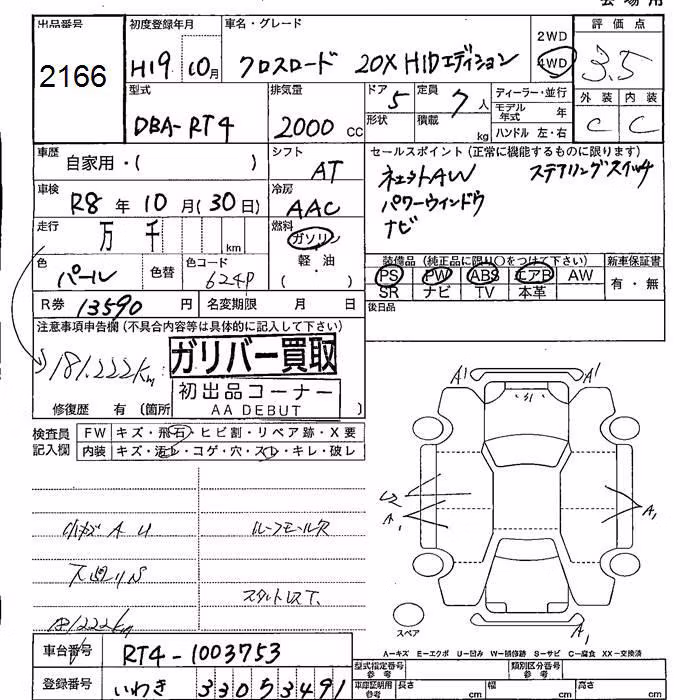 会場用
出品番号
2166
初度登録年月
H19 10月
車名・グレード
クロスロード 20X HIDエディション
2WD
4WD
評価点
3.5
外装 内装
C C
型式
DBA-RT4
排気量
2000 CC
ドア 5
形状
定員 7 人
積載 kg
ディーラー・並行
モデル年式 年
ハンドル 左・右
車歴
自家用・( )
シフト
AT
セールスポイント (正常に機能するものに限ります)
ステアリングスイッチ
パワーウィンドウ
ナビ
車検
R8 年 10 月 (30 日)
冷房
AAC
走行
万 千 km
燃料
ガソリン
軽・油
( )
色
パール
色替
色コード
624P
装備品 (純正品に限り○をつけて下さい)
新車保証書
PS PW ABS エアB AW
有・無
SR ナビ TV 本革
R券 13590 円
名変期限 月 日
後日品
注意事項申告欄 (不具合内容等は具体的に記入して下さい)
181,222km
ガリバー買取
初出品コーナー
AA DEBUT
修復歴 有 (箇所 )
検査員記入欄
FW キズ・飛石・ヒビ割・リペア跡・X要
内装 キズ・汚レ・コゲ・穴・スレ・キレ・破レ
小キズ A U
ルーフモール
181222km
A1 A1
U2
A1
A1
A1
スペア
A=キズ E=エクボ U=凹み W=補修跡 S=サビ C=腐食 XX=交換済
車台番号
RT4-1003753
型式指定番号 参考
類別区分番号 参考
登録番号
いわき 330 す 3491
車庫証明用 参考
長さ cm 幅 cm 高さ cm